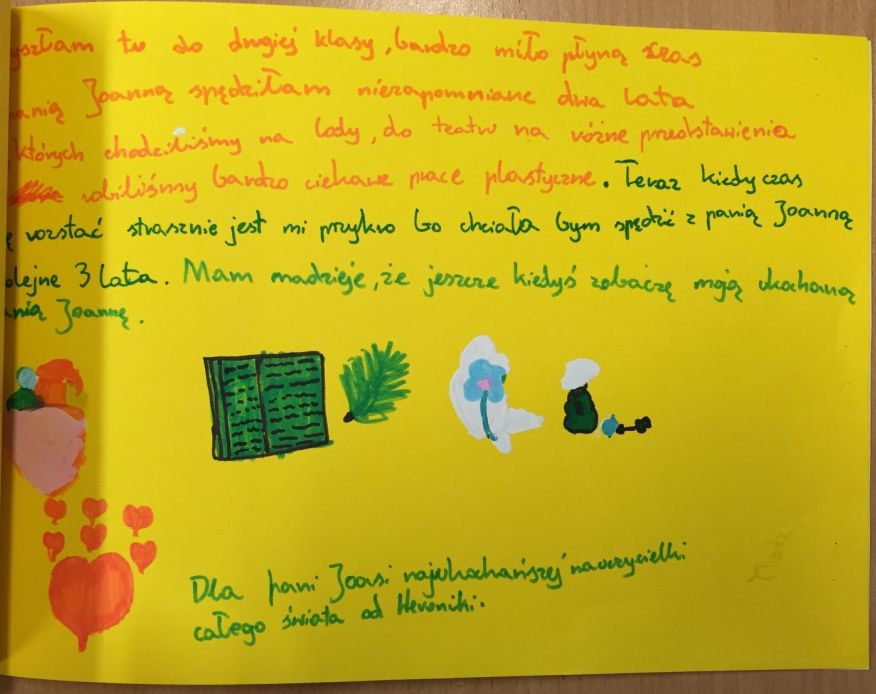 yszłam tu do drugiej klasy, bardzo miło płyną czas
anią Joanną spędziłam niezapomniane dwa lata
których chodziliśmy na lody, do teatru na różne przedstawienia
robiliśmy bardzo ciekawe prace plastyczne. Teraz kiedy czas
ę rozstać strasznie jest mi przykro bo chciała bym spędzić z panią Joanną
olejne 3 lata. Mam madzieje, że jeszcze kiedyś zobaczę moją ukochaną
nią Joannę.
Dla pani Joasi najukochańszej nauczycielki
całego świata od Weroniki.